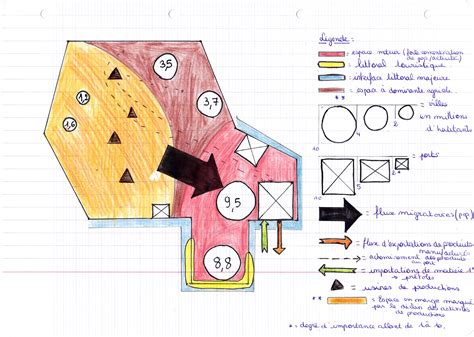 Légende :
= espace moteur (forte concentration de pop/activité)
= littoral touristique
= interface littoral majeure
= espace à dominante agricole
**
= villes
en millions
d'habitants
10
4
2
= ports
10
5
2*
= flux migratoires (pop)
= flux d'exportations de produits
manufacturés
= acheminement des produits
au port
= importations de matière 1ère
→ pétrole
= usines de productions
**
= Espace en marge marqué
par le déclin des productions
* = degré d'importance allant de 1 à 10.
3,5
3,7
1,6
9,5
8,8